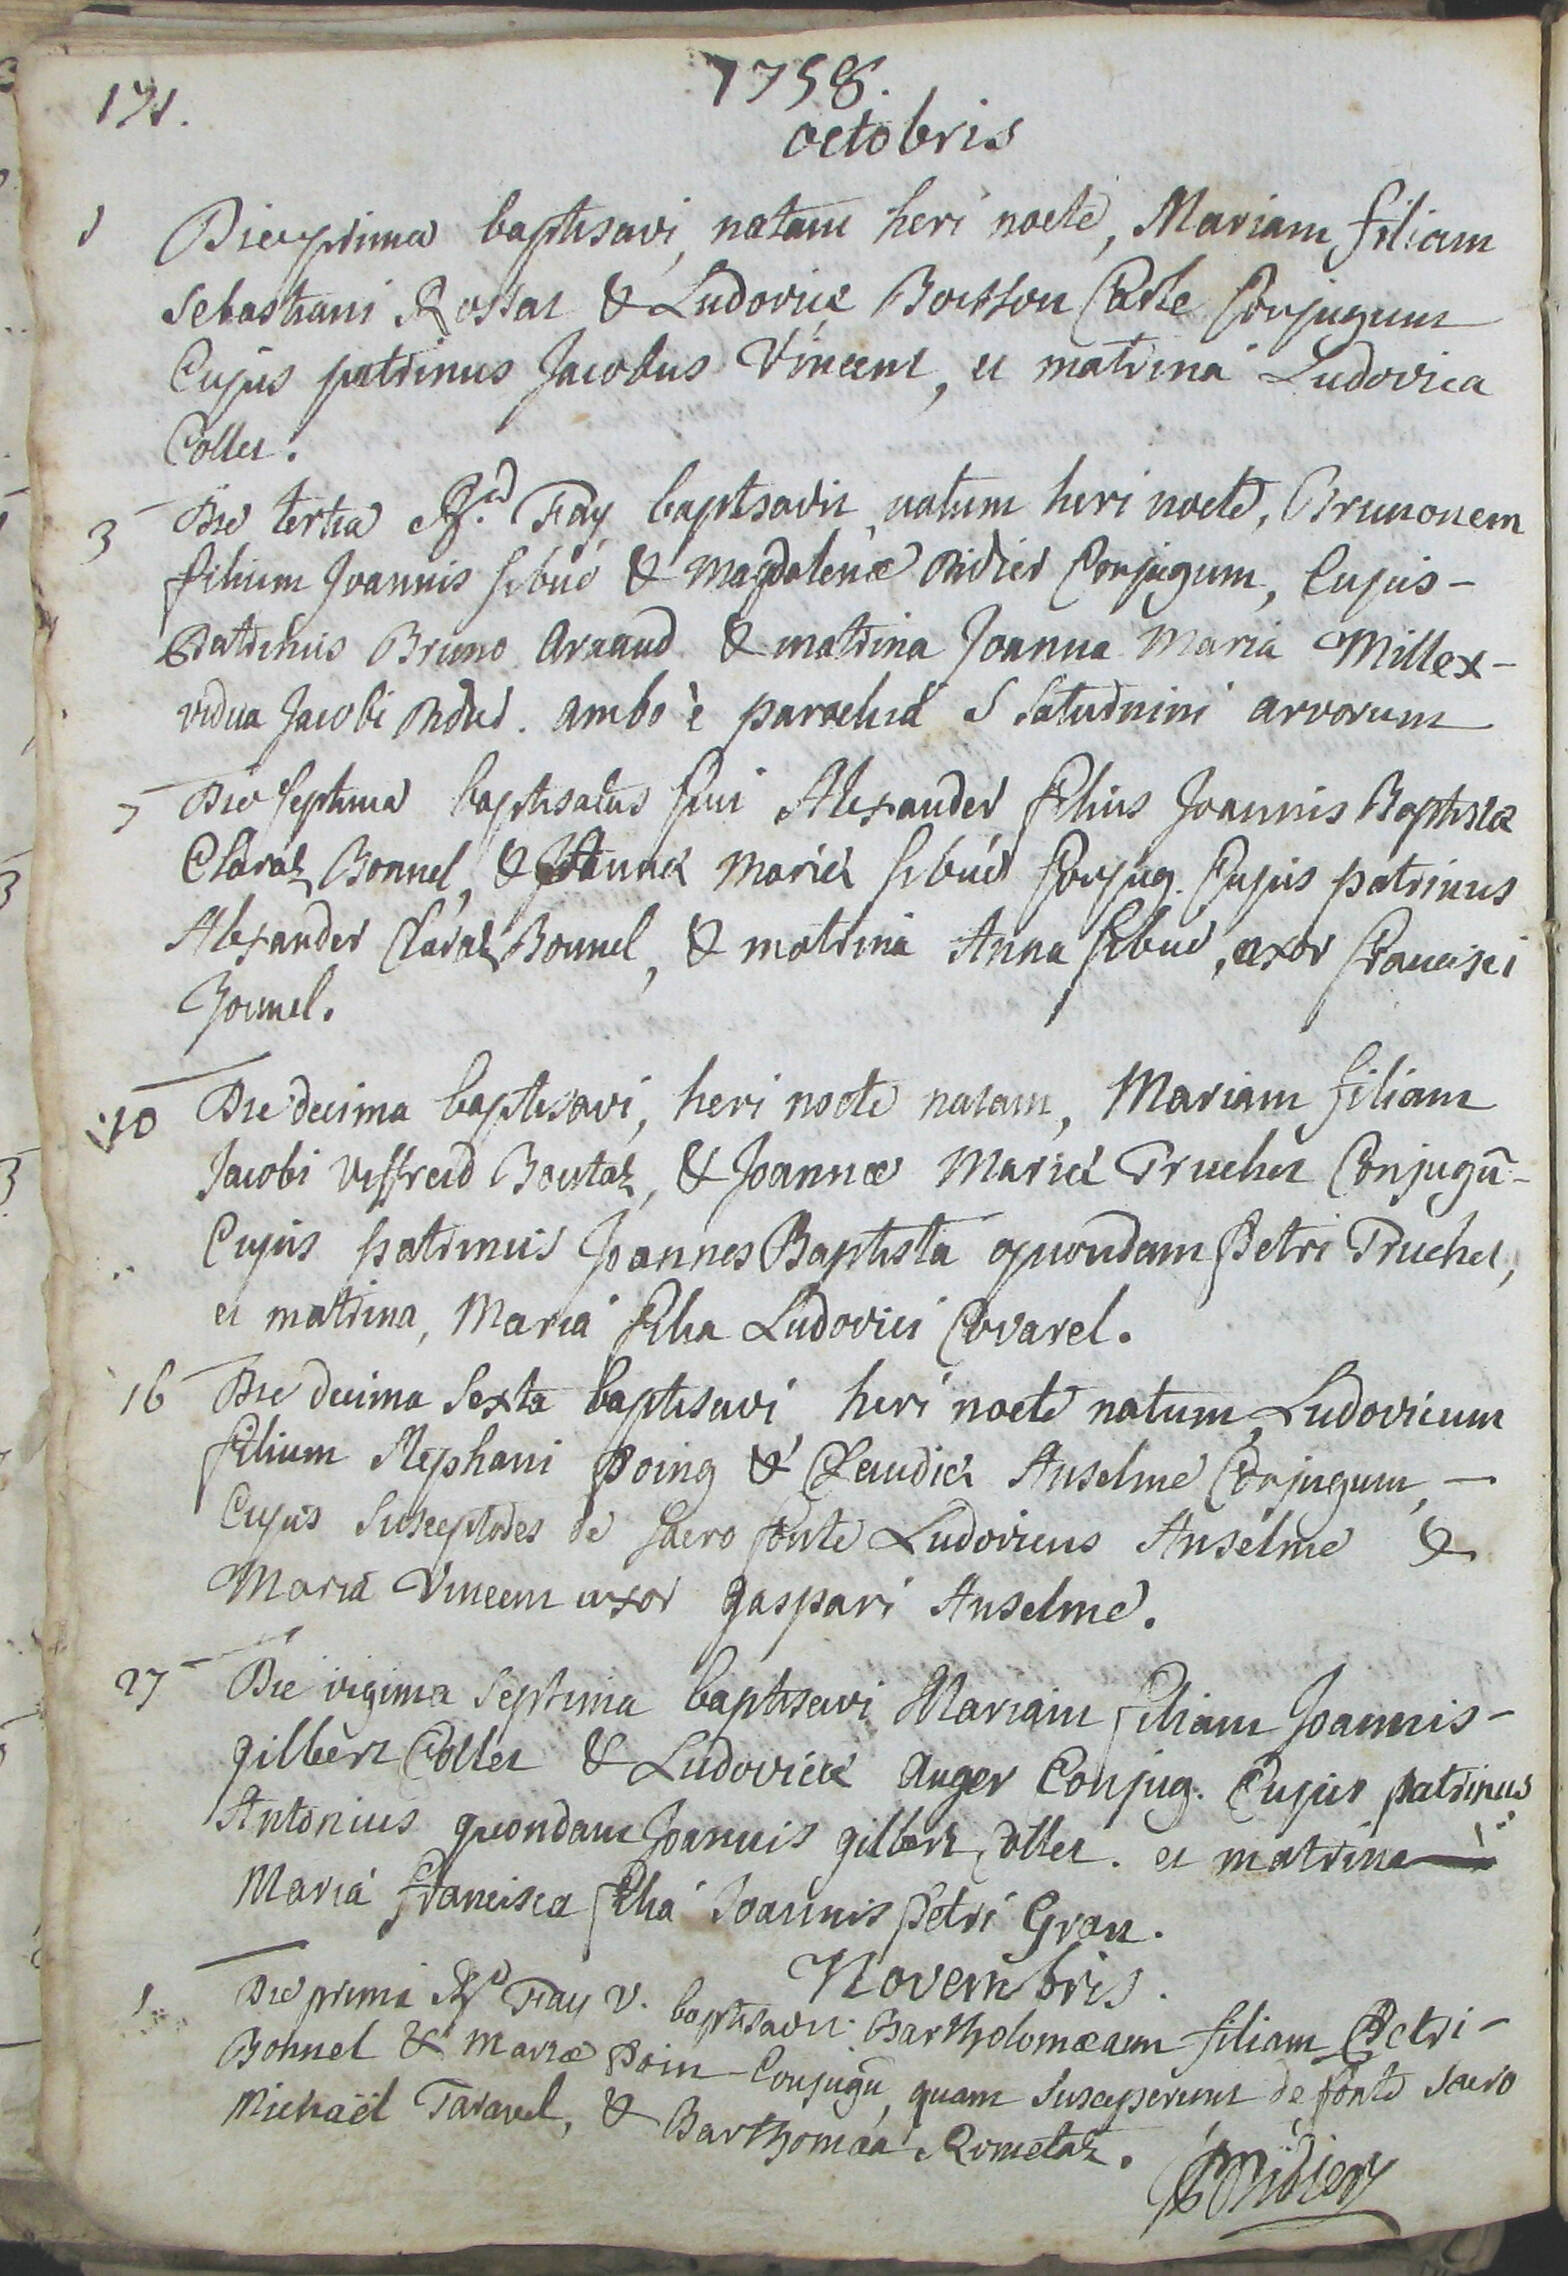 171.
1758.
octobris
1 Die prima baptisavi, natam heri nocte, Mariam filiam
Sebastiani Rossat & Ludovicæ Boisson Carle Conjugum
Cujus patrinus Jacobus Vincent, et matrina Ludovica
Collet.
3 Die tertia Rd Fay baptisavit, natum heri nocte, Brunonem
filium Joannis sibué & Magdalenæ Didier Conjugum, Cujus-
Patrinus Bruno Arnaud & matrina Joanna Maria Millex-
vidua Jacobi Didier. ambo è parochia S Saturnini arvorum
7 Die septima baptisatus fui Alexander filius Joannis Baptistæ
Claraz Bonnel, & Joannæ Mariæ sibué Conjug. Cujus patrinus
Alexander Claraz Bonnel, & matrina Anna sibué, uxor francisci
Bonnel.
10 Die decima baptisavi, heri nocte natam, Mariam filiam
Jacobi Viffreid Boutaz, & Joannæ Mariæ Truchet Conjugū-
Cujus patrinus Joannes Baptista quondam Petri Truchet,
et matrina, Maria filia Ludovici Covarel.
16 Die decima sexta baptisavi heri nocte natum, Ludovicum
filium Stephani Poing & Claudiæ Anselme Conjugum, -
Cujus susceptores de sacro fonte Ludovicus Anselme &
Maria Vincent uxor gaspari Anselme.
27 Die vigima septima baptisavi Mariam filiam Joannis-
gilbert Collet & Ludovicæ Auger Conjug. Cujus patrinus
Antonius quondam Joannis gilbert Collet. et matrina
Maria francisca filia Joannis Petri Gran.
Novembris.
1 Die prima Rd Fay V. baptisavit Bartholomæam filiam Petri-
Bonnel & Mariæ Poin-Conjugū, quam susceperunt de fonte sacro
Michaël Taravel, & Barthomæa Rometaz.
Didier